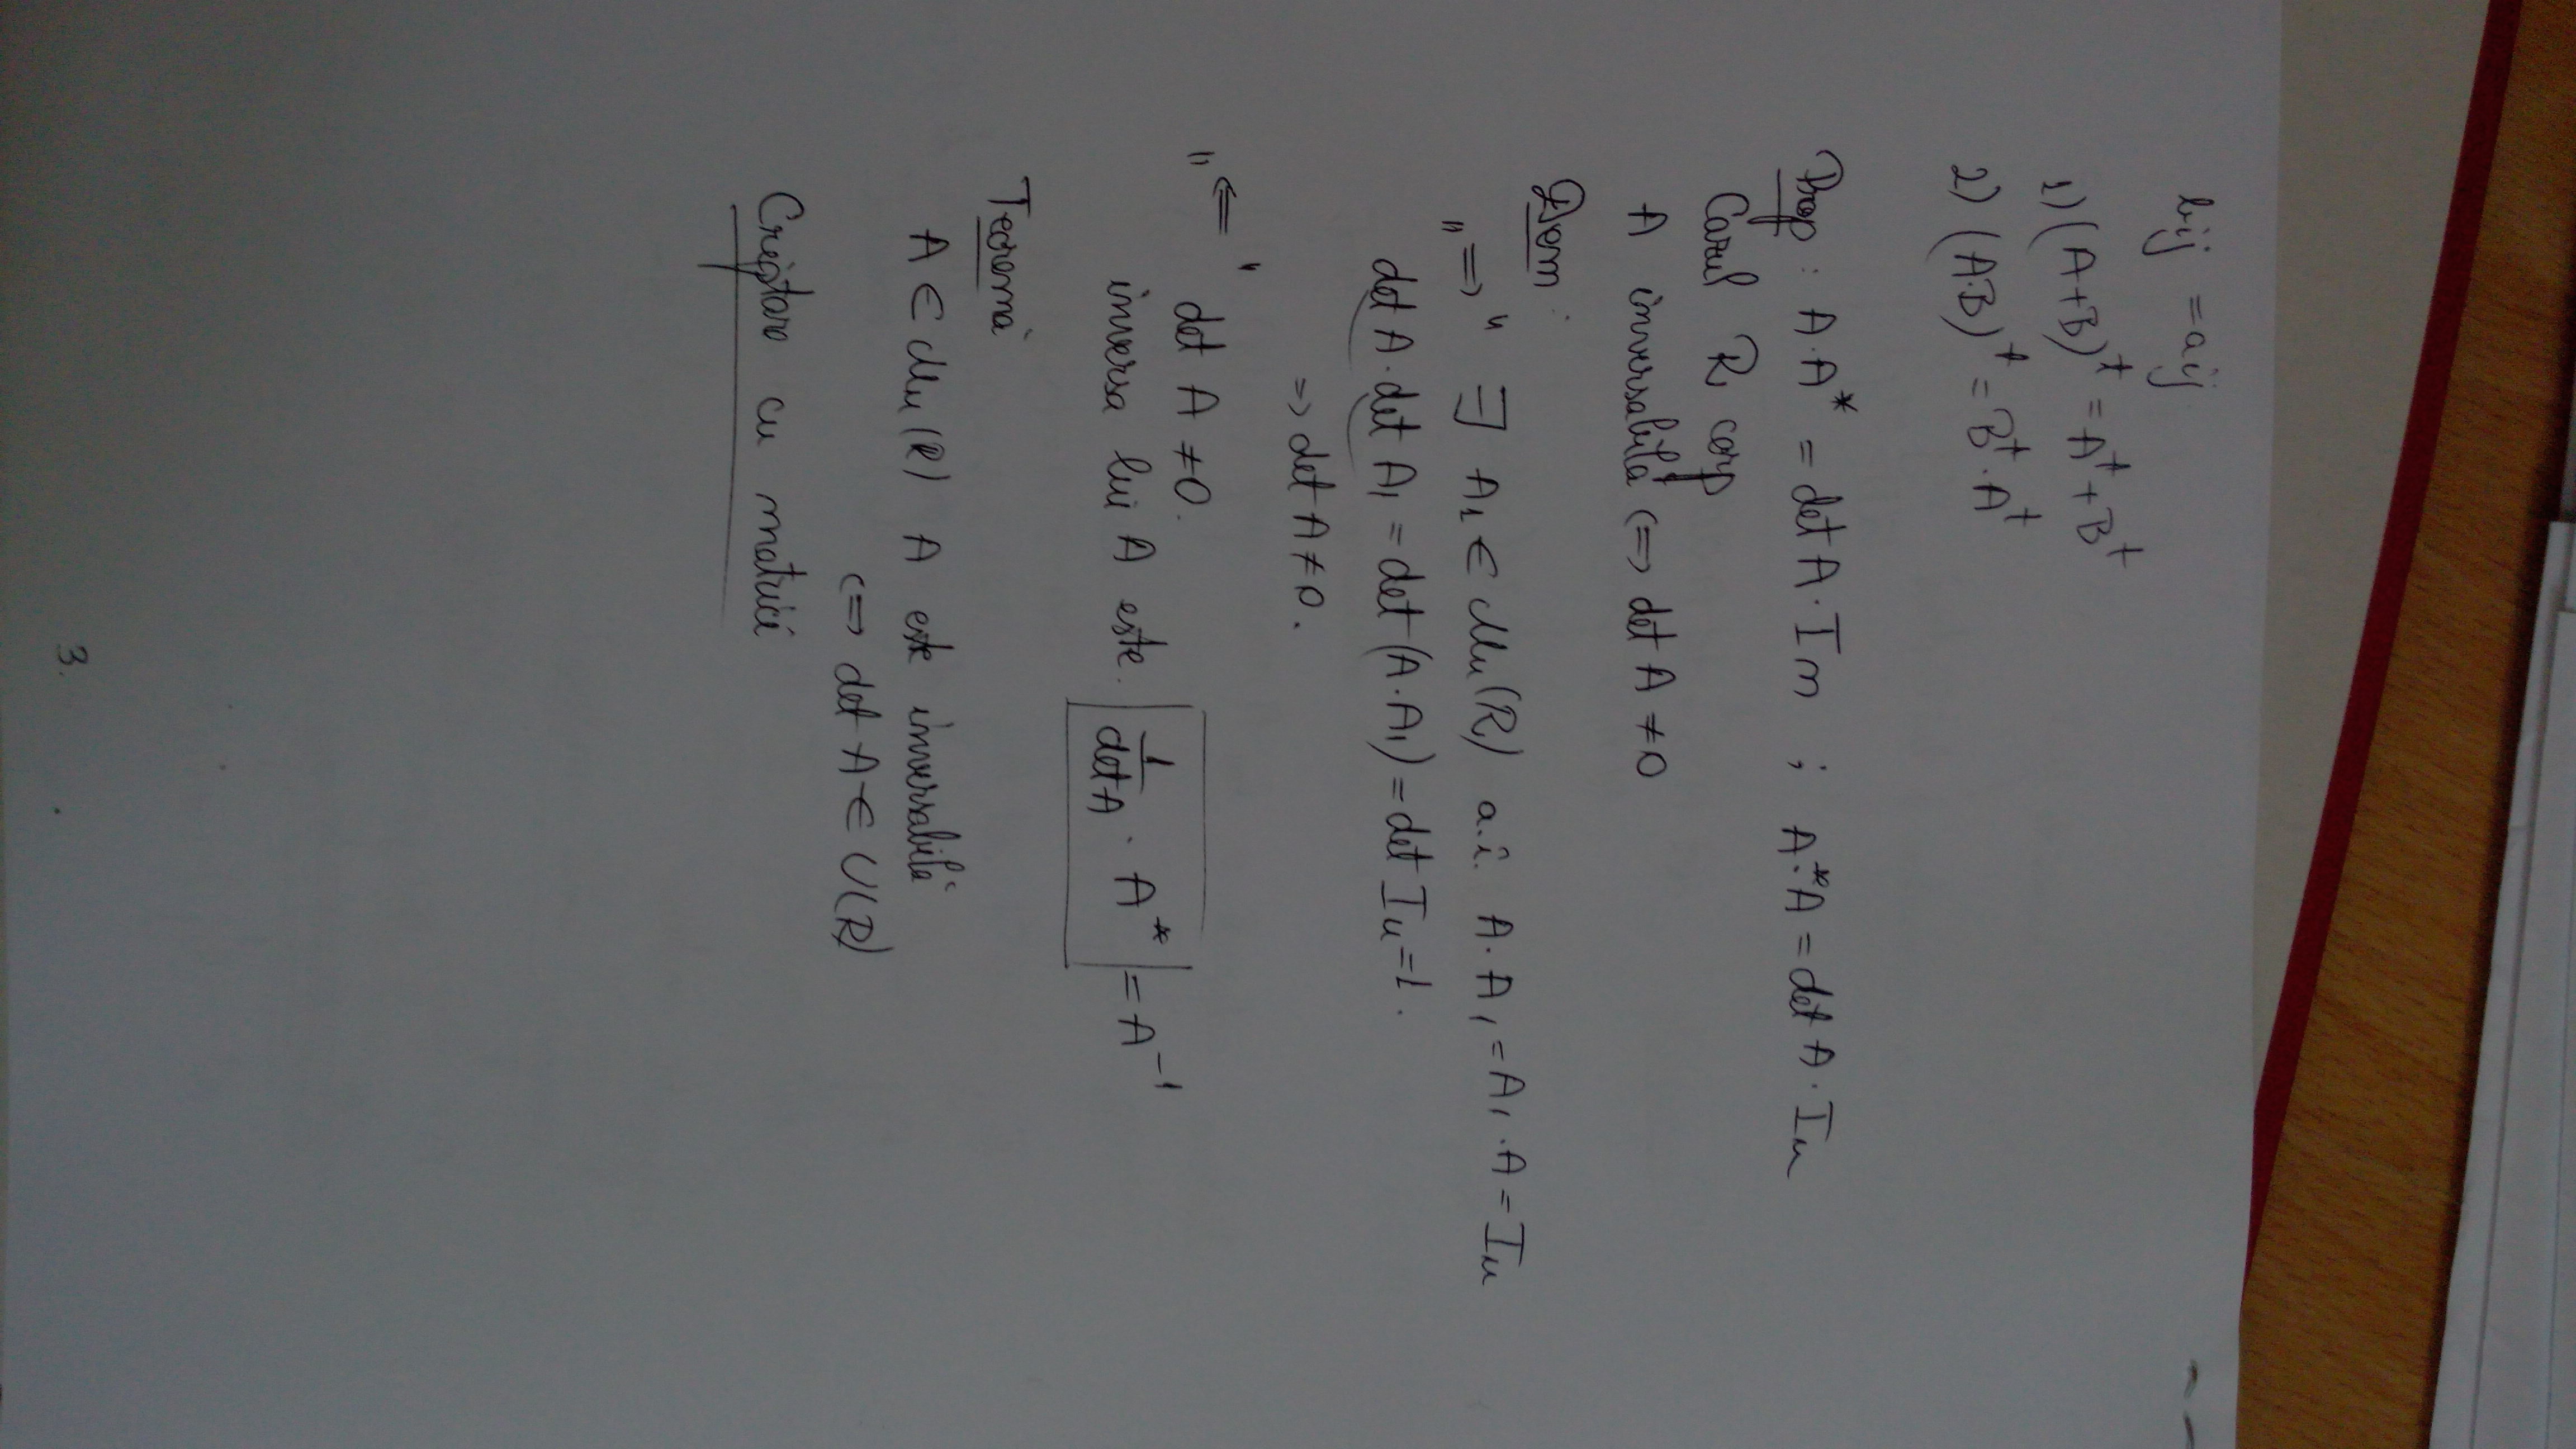 bij = aij
1) (A+B)^t = A^t + B^t
2) (A·B)^t = B^t · A^t
Prop: A·A* = det A · In ; A*·A = det A · In
Cazul R corp
A inversabilă <=> det A ≠ 0
Dem:
„=>" ∃ A1 ∈ Mn(R) a.î. A·A1 = A1·A = In
det A · det A1 = det (A·A1) = det In = 1.
=> det A ≠ 0.
„<=" det A ≠ 0.
inversa lui A este 1/det A · A* = A^-1
Teoremă
A ∈ Mn(R) A este inversabilă
<=> det A ∈ U(R)
Criptare cu matrici
3.